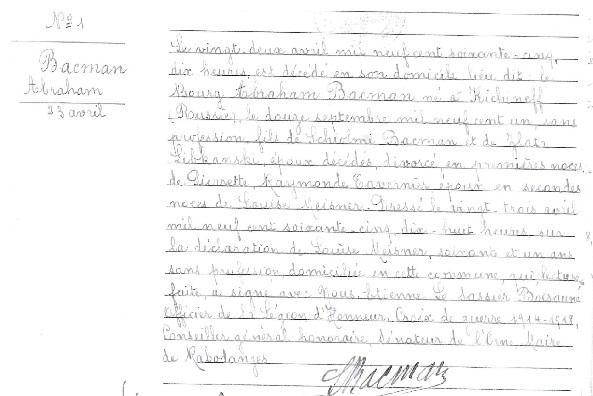 Nº 1
Bacman
Abraham
23 avril
Le vingt-deux avril mil neuf cent soixante-cinq,
dix heures, est décédé en son domicile lieu dit le
Bourg Abraham Bacman né à Kichineff
(Russie), le douze septembre mil neuf cent un, sans
profession, fils de Schiolmi Bacman et de Zlata
Libkanski, époux décédés, divorcé en premières noces
de Pierrette Raymonde Tavernier époux en secondes
noces de Louise Meisner. Dressé le vingt-trois avril
mil neuf cent soixante-cinq, dix-huit heures sur
la déclaration de Louise Meisner, soixante et un ans
sans profession, domiciliée en cette commune, qui, lecture
faite, a signé avec Nous, Etienne Le Sassier Boisauné
Officier de la Légion d'Honneur, Croix de guerre 1914-1918,
Conseiller général honoraire, sénateur de l'Orne, Maire
de Rabodanges
Bacman